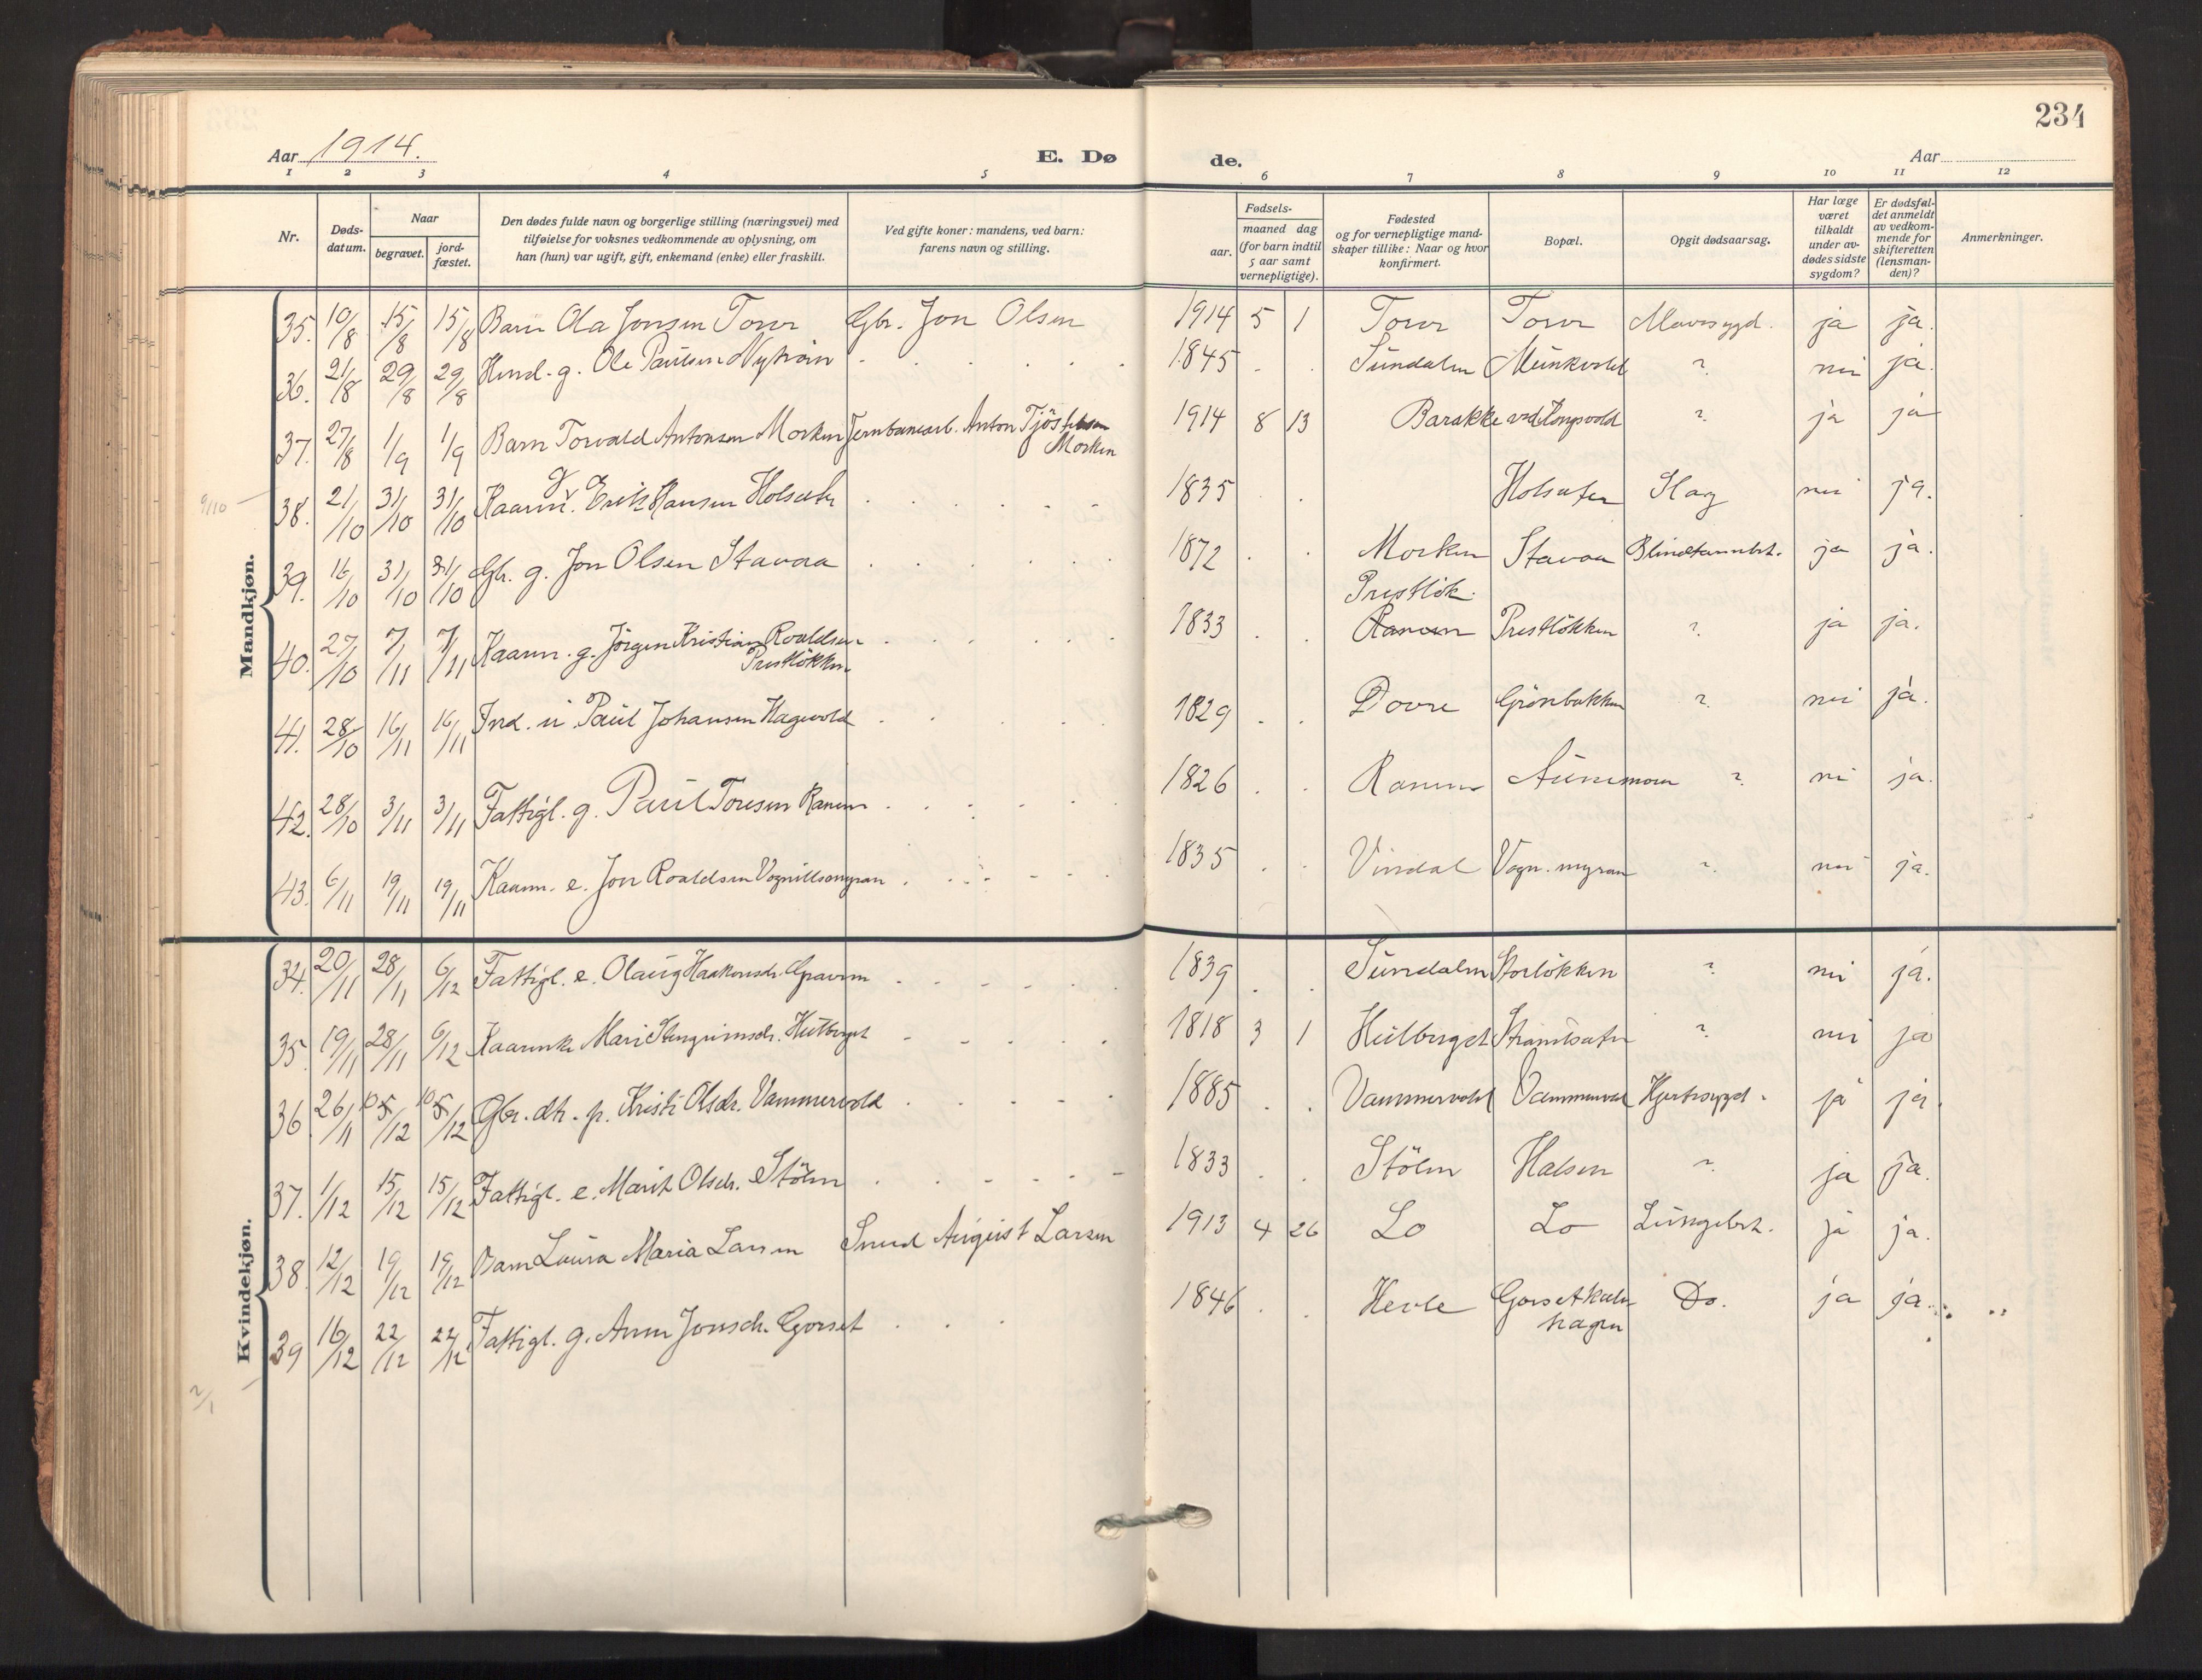 234
Aar 1914. E. Dø de. Aar
1 2 3 4 5 6 7 8 9 10 11 12
Nr. Døds-datum. Naar begravet. jord-fæstet. Den dødes fulde navn og borgerlige stilling (næringsvei) med tilføielse for voksnes vedkommende av oplysning, om han (hun) var ugift, gift, enkemand (enke) eller fraskilt. Ved gifte koner: mandens, ved barn: farens navn og stilling. Fødsels- aar. maaned dag (for barn indtil 5 aar samt vernepligtige). Fødested og for vernepligtige mand-skaper tillike: Naar og hvor konfirmert. Bopæl. Opgit dødsaarsag. Har læge været tilkaldt under av-dødes sidste sygdom? Er dødsfal-det anmeldt av vedkom-mende for skifteretten (lensman-den)? Anmerkninger.
Mandkjøn.
35. 10/8 15/8 15/8 Barn Ola Jonsen Torve Gbr. Jon Olsen 1914 5 1 Torve Torve Mavesygd. ja ja.
36. 21/8 29/8 29/8 g. Ole Paulsen Nytrøin 1845 Sundalen Munkvold ? nei ja.
37. 27/8 1/9 1/9 Barn Torvald Antonsen Morken Jernbanearb. Anton Tjöstelsen
Morken 1914 8 13 Barakke ved Engvold ? ja ja
9/10
38. 21/10 31/10 31/10 Kaarm. g Erik Hansen Holsæter 1835 Holsæter Slag nei ja.
39. 16/10 31/10 31/10 Gbr. g. Jon Olsen Stavaa 1872 Morken Stavaa Blindtarmbet. ja ja.
Prestløk.
40. 27/10 7/11 7/11 Kaarm. g. Jörgen Kristian Roaldsen
Prestlökken 1833 Ranem Prestlökken ? ja ja.
41. 28/10 16/11 16/11 Ind. u. Paul Johansen Hagevold 1829 Dovre Grönbakken ? nei ja.
42. 28/10 3/11 3/11 Fattigl. g. Paul Toresen Ranem 1826 Ranem Aunemoen ? nei ja.
43. 6/11 19/11 19/11 Kaarm. e. Jon Roaldsen Vognillsmyran 1835 Vindal Vogn. myran ? nei ja.
Kvindekjøn.
34. 20/11 28/11 6/12 Fattigl. e. Olaug Haakonsdr. Gravem 1839 Sundalen Storlökken ? nei ja.
35. 19/11 28/11 6/12 Kaarenke Mari Stengrimsdr. Hulberget 1818 3 1 Hulberget Strandsæter ? nei ja
36 26/11 5/12 5/12 Gbr. dtr. p. Kristi Olsdr. Vammervold 1885 Vammervold Vammervold Hjertesygd. ja ja.
37. 1/12 15/12 15/12 Fattigl. e. Marit Olsdr. Stölen 1833 Stölen Halsen ? ja ja.
38. 12/12 19/12 19/12 Barn Laura Maria Larsen Smed August Larsen 1913 4 26 Lo Lo Lungebet. ja ja.
39 16/12 22/12 22/12 Fattigl. g. Anne Jonsdr. Gorset 1846 Hevle Gorsetkaln
hagen Do. ja ja.
2/1